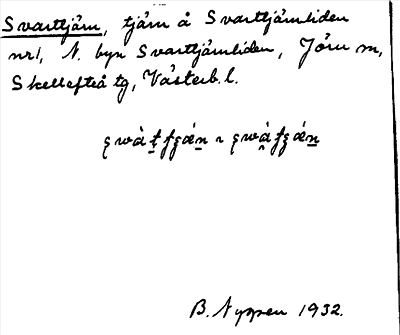 Svarttjärn, tjärn å Svarttjärnliden
nr1, N. byn Svarttjärnliden, Jörn sn,
Skellefteå tg, Västerb. l.
B. Nyppen 1932.